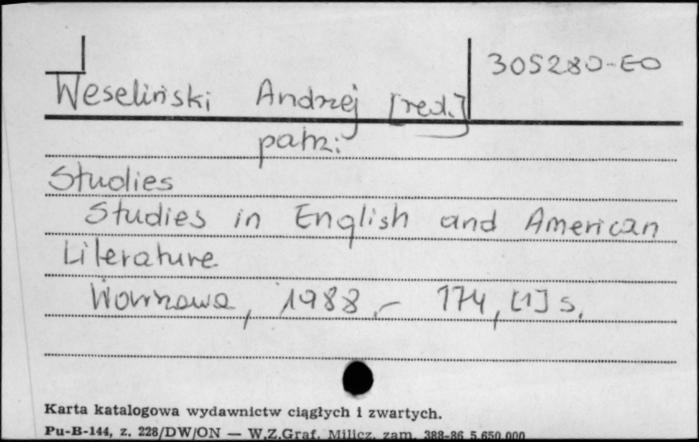 305280-EO
Weseliński Andrzej [red.]
patrz:
Studies
Studies in English and American
Literature
Warszawa, 1988.- 174, [1] s.
Karta katalogowa wydawnictw ciągłych i zwartych.
Pu-B-144, z. 228/DW/ON — W.Z.Graf. Milicz, zam. 388-86 5.650.000